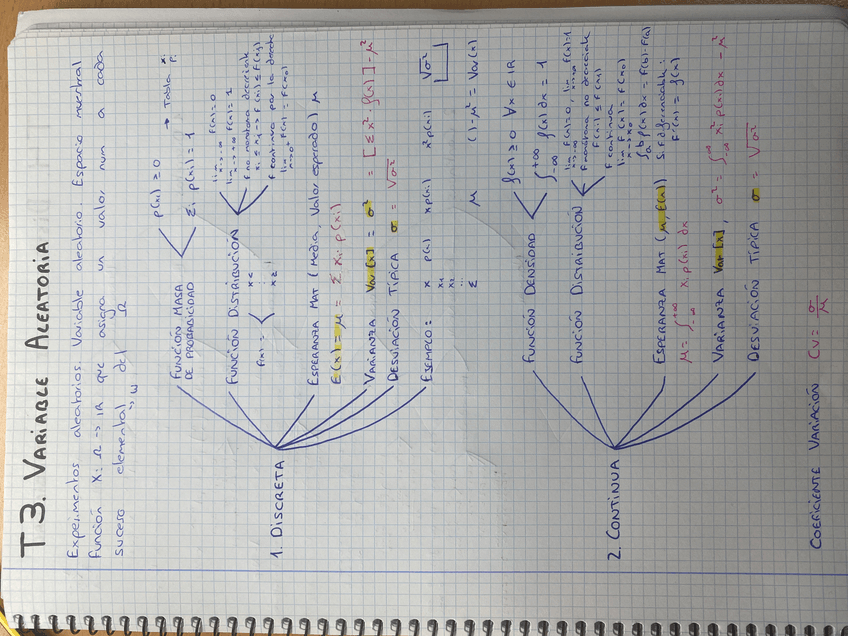 T3. VARIABLE ALEATORIA
Experimentos aleatorios. Variable aleatoria. Espacio muestral
Función X: Ω → IR que asigna un valor num a cada
suceso elemental del
ω Ω
1. DISCRETA
FUNCIÓN MASA
DE PROBABILIDAD
p(xi) ≥ 0 → Tabla xi
pi
Σi p(xi) = 1
FUNCIÓN DISTRIBUCIÓN
F(x) =
x<
x≥
lim x→-∞ F(x) = 0
lim x→+∞ F(x) = 1
F no monótona decreciente
xi ≤ xj → F(xi) ≤ F(xj)
F continua por la derecha
lim F(x) = F(x0)
ESPERANZA MAT (Media, Valor esperado) μ
E(x) = μ = Σ xi · p(xi)
VARIANZA Var[x] = σ² = [Σ x² · f(x)] - μ²
DESVIACIÓN TÍPICA σ = √σ²
EJEMPLO: x p(xi) x p(xi) x² p(xi) √σ²
x1
x2
⋮
Σ μ ( ) - μ² = Var(x)
2. CONTINUA
FUNCIÓN DENSIDAD
f(x) ≥ 0 ∀x ∈ IR
∫-∞+∞ f(x) dx = 1
FUNCIÓN DISTRIBUCIÓN
lim x→-∞ F(x) = 0, lim x→+∞ F(x) = 1
F monótona no decreciente
F(xi) ≤ F(xj)
F continua
lim x→x0 F(x) = F(x0)
∫ab p(x) dx = F(b) - F(a)
Si F diferenciable:
F'(x) = f(x)
ESPERANZA MAT (μ, E(x))
μ = ∫-∞+∞ x · p(x) dx
VARIANZA Var[x], σ² = ∫-∞∞ x² · p(x) dx - μ²
DESVIACIÓN TÍPICA σ = √σ²
COEFICIENTE VARIACIÓN CV = σ/μ